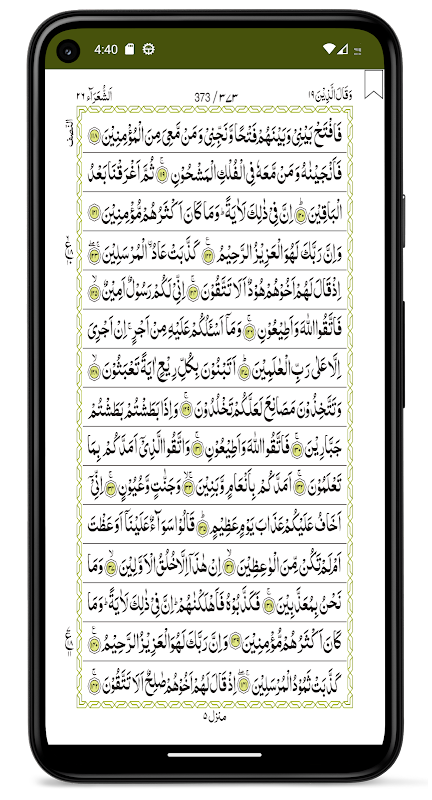 4:40
وَقَالَ الَّذِيْنَ ١٩
373 / ٣٧٣
اَلشُّعَرَآء ٢٦
فَافْتَحْ بَيْنِيْ وَبَيْنَهُمْ فَتْحًا وَّنَجِّنِيْ وَمَنْ مَّعِيَ مِنَ الْمُؤْمِنِيْنَ ﴿١١٨﴾
فَاَنْجَيْنٰهُ وَمَنْ مَّعَهٗ فِي الْفُلْكِ الْمَشْحُوْنِ ﴿١١٩﴾ ثُمَّ اَغْرَقْنَا بَعْدُ
الْبَاقِيْنَ ﴿١٢٠﴾ اِنَّ فِيْ ذٰلِكَ لَاٰيَةً ؕ وَمَا كَانَ اَكْثَرُهُمْ مُّؤْمِنِيْنَ ﴿١٢١﴾
وَاِنَّ رَبَّكَ لَهُوَ الْعَزِيْزُ الرَّحِيْمُ ﴿١٢٢﴾ كَذَّبَتْ عَادُ ۨالْمُرْسَلِيْنَ ﴿١٢٣﴾
اِذْ قَالَ لَهُمْ اَخُوْهُمْ هُوْدٌ اَلَا تَتَّقُوْنَ ﴿١٢٤﴾ اِنِّيْ لَكُمْ رَسُوْلٌ اَمِيْنٌ ﴿١٢٥﴾
فَاتَّقُوا اللّٰهَ وَاَطِيْعُوْنِ ﴿١٢٦﴾ وَمَاۤ اَسْـَٔلُكُمْ عَلَيْهِ مِنْ اَجْرٍ ۚ اِنْ اَجْرِيَ
اِلَّا عَلٰى رَبِّ الْعٰلَمِيْنَ ﴿١٢٧﴾ اَتَبْنُوْنَ بِكُلِّ رِيْعٍ اٰيَةً تَعْبَثُوْنَ ﴿١٢٨﴾
وَتَتَّخِذُوْنَ مَصَانِعَ لَعَلَّكُمْ تَخْلُدُوْنَ ﴿١٢٩﴾ وَاِذَا بَطَشْتُمْ بَطَشْتُمْ
جَبَّارِيْنَ ﴿١٣٠﴾ فَاتَّقُوا اللّٰهَ وَاَطِيْعُوْنِ ﴿١٣١﴾ وَاتَّقُوا الَّذِيْۤ اَمَدَّكُمْ بِمَا
تَعْلَمُوْنَ ﴿١٣٢﴾ اَمَدَّكُمْ بِاَنْعَامٍ وَّبَنِيْنَ ﴿١٣٣﴾ وَجَنّٰتٍ وَّعُيُوْنٍ ﴿١٣٤﴾ اِنِّيْۤ
اَخَافُ عَلَيْكُمْ عَذَابَ يَوْمٍ عَظِيْمٍ ﴿١٣٥﴾ قَالُوْا سَوَآءٌ عَلَيْنَاۤ اَوَعَظْتَ
اَمْ لَمْ تَكُنْ مِّنَ الْوٰعِظِيْنَ ﴿١٣٦﴾ اِنْ هٰذَاۤ اِلَّا خُلُقُ الْاَوَّلِيْنَ ﴿١٣٧﴾ وَمَا
نَحْنُ بِمُعَذَّبِيْنَ ﴿١٣٨﴾ فَكَذَّبُوْهُ فَاَهْلَكْنٰهُمْ ؕ اِنَّ فِيْ ذٰلِكَ لَاٰيَةً ؕ وَمَا
كَانَ اَكْثَرُهُمْ مُّؤْمِنِيْنَ ﴿١٣٩﴾ وَاِنَّ رَبَّكَ لَهُوَ الْعَزِيْزُ الرَّحِيْمُ ﴿١٤٠﴾
كَذَّبَتْ ثَمُوْدُ الْمُرْسَلِيْنَ ﴿١٤١﴾ اِذْ قَالَ لَهُمْ اَخُوْهُمْ صٰلِحٌ اَلَا تَتَّقُوْنَ ﴿١٤٢﴾
منزل ٥